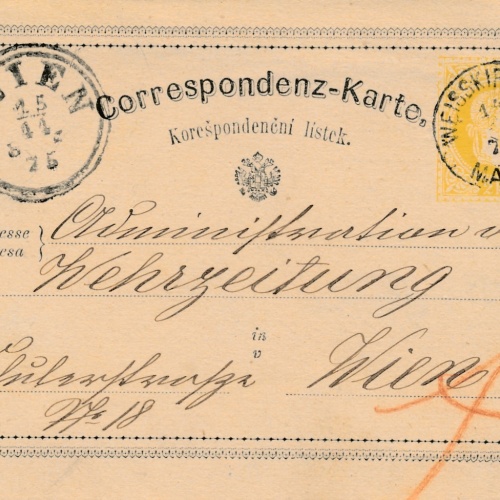 WIEN
15
11
75
Correspondenz-Karte.
Korešpondenční lístek.
WEISSKIR
MÄ
esse
esa
Administration d
Wehrzeitung
in
v
Wien
No 18